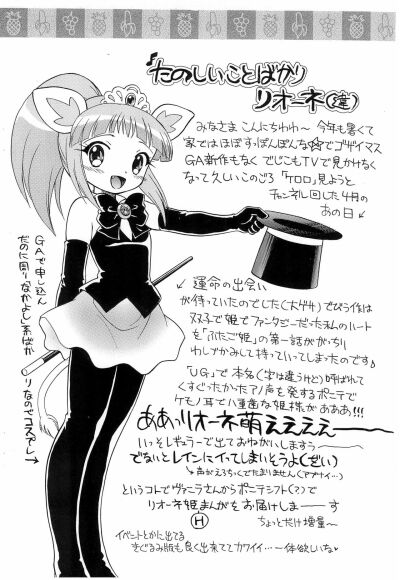 ♪たのしいことばかり
リオーネ(違)
みなさま こんにちわわ〜 今年も暑くて
家ではほぼすっぽんぽんな☆でゴザイマス
GA新作もなく でじこもTVで見かけなく
なって久しいこのごろ「ケロロ」見ようと
チャンネル回した4月の
あの日↙
↙運命の出会い
が待っていたのでした(大ゲサ)でびう作は
双子で姫でファンタジーだったえむのハート
を「ふたご姫」の第一話ががっちり
わしづかみして持っていってしまったのです♪
「UG」で本名(字は違うけど)呼ばれて
くすぐったかったアノ声を発するポニテで
ケモノ耳で八重歯な姫様が あああ!!!
ああっリオーネ萌ええええ――
いっそレギュラーで出ておねがいしますぅ〜
でないとレインにイってしまいそうよ(ぜい)
↳声がえろっちくてたまりません(アブナイ…)
というコトでヴァニラさんからポニテシフト(?)で
リオーネ姫まんがをお届けしま――す
Ⓗ ちょっとだけ増量〜
イベントとかに出てる
きぐるみ版も良く出来ててカワイイ…一体欲しいな
GAで申し込ん
だのに周りなかよし系ばか
りなのでコスプレ→